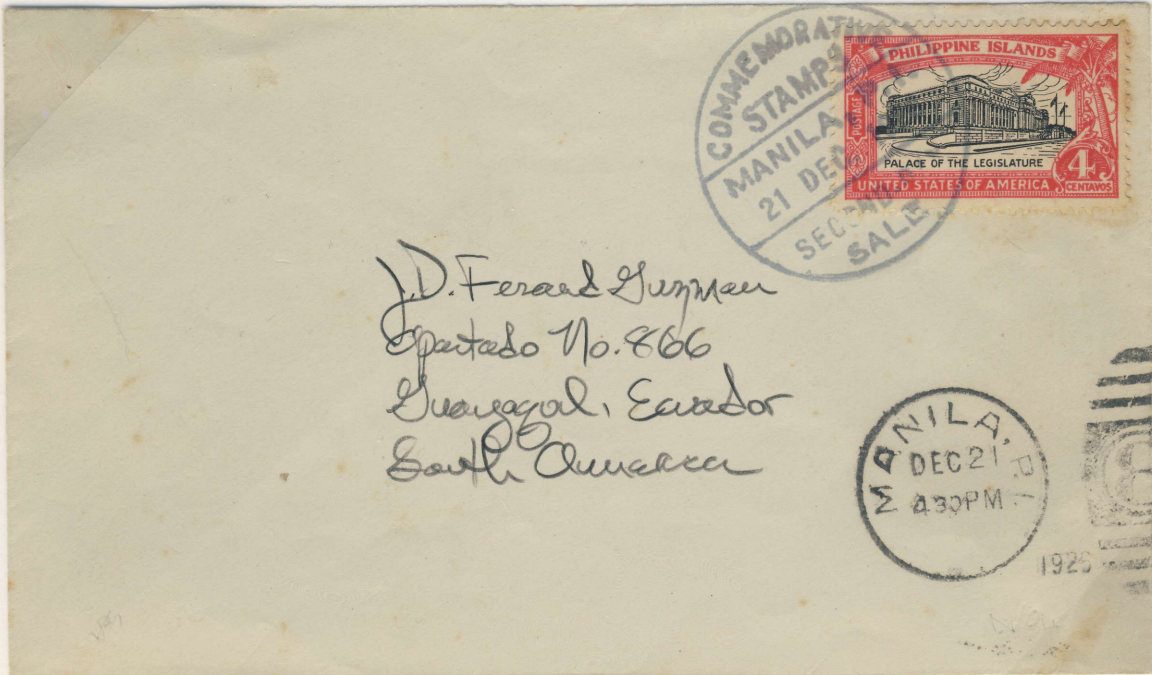 COMMEMORATIVE
STAMPS
MANILA
21 DEC
SECOND
SALE
PHILIPPINE ISLANDS
POSTAGE
PALACE OF THE LEGISLATURE
4
CENTAVOS
UNITED STATES OF AMERICA
J.D. Feraud Guzman
Apartado No. 866
Guayaqol, Ecuador
South America
MANILA, P.I.
DEC 21
430PM